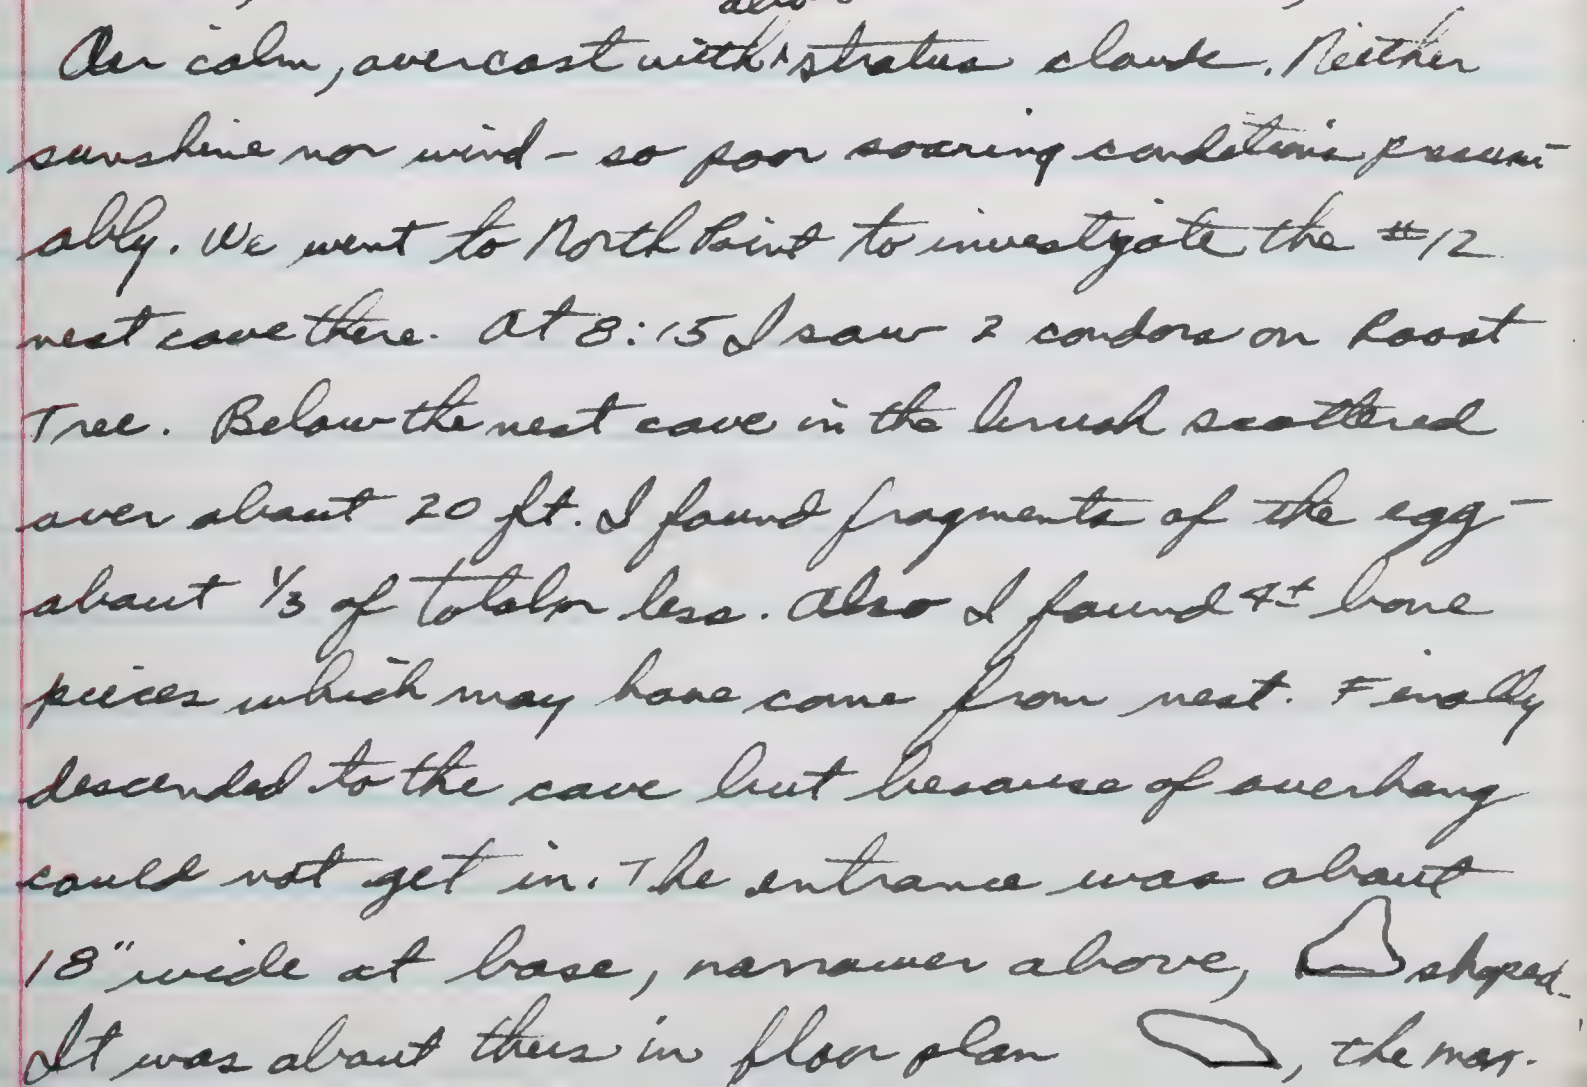 Air calm, overcast with stratus clouds. Neither
sunshine nor wind - so poor soaring conditions presum-
ably. We went to North Point to investigate the #12
nest cave there. At 8:15 I saw 2 condors on Roost
Tree. Below the nest cave in the brush scattered
over about 20 ft. I found fragments of the egg -
about 1/3 of total or less. Also I found 4± bone
pieces which may have come from nest. Finally
descended to the cave but because of overhang
could not get in. The entrance was about
18" wide at base, narrower above, shaped.
It was about thus in floor plan , the max.